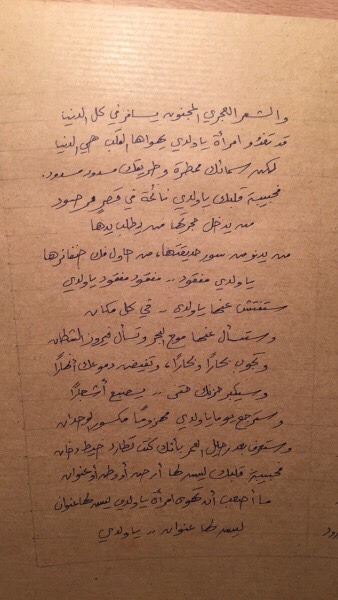 والشعر الغجري المجنون يسافر في كل الدنيا
قد تغدو امرأة يا ولدي يهواها القلب هي الدنيا
لكن سماءك ممطرة وطريقك مسدود مسدود.
فحبيبة قلبك يا ولدي نائمة في قصر مرصود
من يدخل حجرتها من يطلب يدها
من يدنو من سور حديقتها، من حاول فك ضفائرها
يا ولدي مفقود .. مفقود مفقود يا ولدي
ستفتش عنها يا ولدي .. في كل مكان
وستسأل عنها موج البحر وتسأل فيروز الشطان
وتجوب بحارًا وبحارًا، وتفيض دموعك أنهارًا
وسيكبر حزنك حتى .. يصبح أشجارًا
وسترجع يوما يا ولدي مهزومًا مكسور الوجدان
وستعرف بعد رحيل العمر بأنك كنت تطارد خيط دخان
فحبيبة قلبك ليس لها أرض أو وطن أو عنوان
ما أصعب أن تهوى امرأة يا ولدي ليس لها عنوان
ليس لها عنوان .. يا ولدي